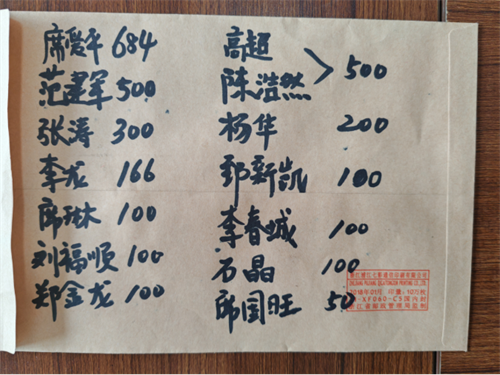 席爱平 684
范建军 500
张涛 300
李龙 166
席琳 100
刘福顺 100
郑金龙 100
高超
陈浩然 > 500
杨华 200
郅新凯 100
李春城 100
石晶 100
席国旺 50